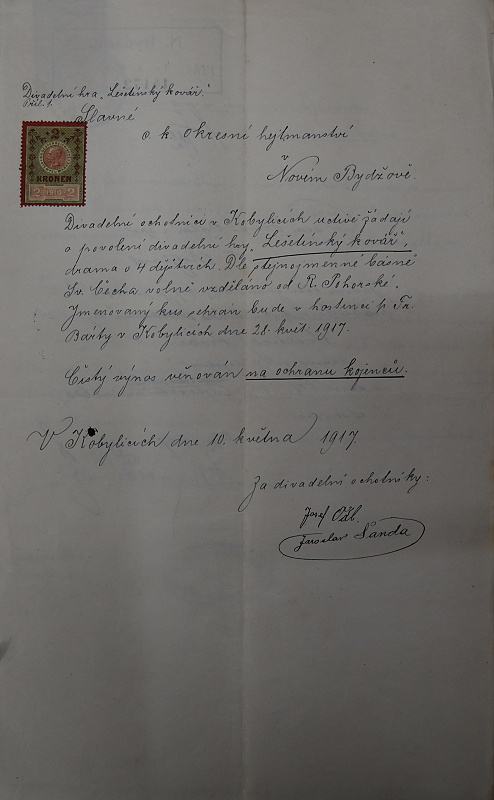 Divadelní hra „Lešetínský kovář."
Příl. 1.
Slavné
c. k. okresní hejtmanství
v
Novém Bydžově.
2
KRONEN
2 1910 2
Divadelní ochotníci v Kobylicích uctivě žádají
o povolení divadelní hry „Lešetínský kovář",
drama o 4 dějstvích. Dle stejnojmenné básně
Sv. Čecha volně vzděláno od R. Pohorské.
Jmenovaný kus sehrán bude v hostinci p. Fr.
Bárty v Kobylicích dne 28. květ. 1917.
Čistý výnos věnován na ochranu kojenců.
V Kobylicích dne 10. května 1917.
Za divadelní ochotníky:
Josef
Jaroslav Šanda